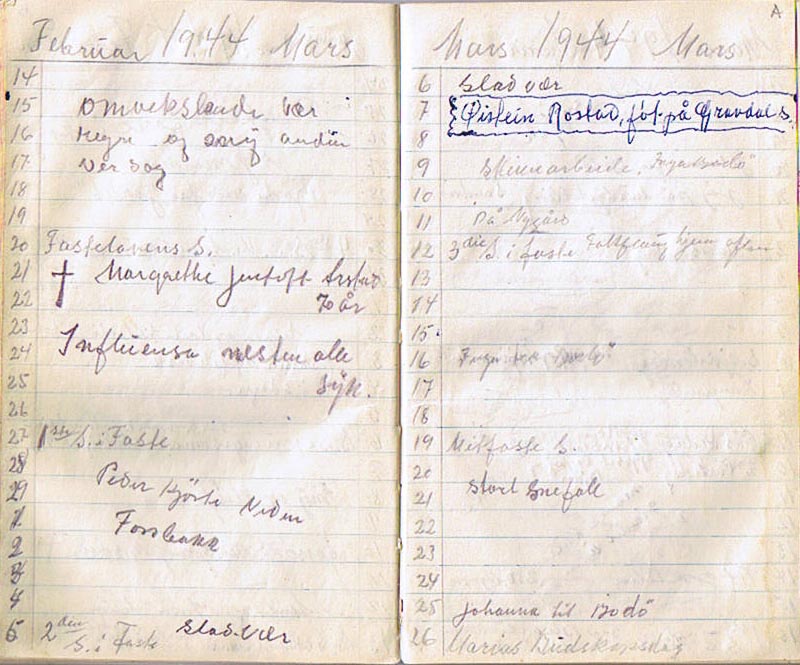 Februar 1944 Mars
14
15 Omvekslande vær
16 Regn og
17 Ver dag
18
19
20 Fastelavens S.
21 † Margrethe Arstad
22 70 år
23
24 Influensa nesten alle
25 syk.
26
27 1ste S. i Faste
28 Peder
29
1 Forsbakk
2
3
4
5 2den S. i Faste Slad vær
A
Mars 1944 Mars
6 Slad vær
7 Øistein Rostad, føt. på Gravdal s.
8
9 Skinnarbeide,
10
11 På Nygård
12 3die S. i faste hjem aften
13
14
15
16
17
18
19 Mitfaste S.
20
21 Stort Snefall
22
23
24
25 Johanna til Bodö
26 Marias Budskapsdag